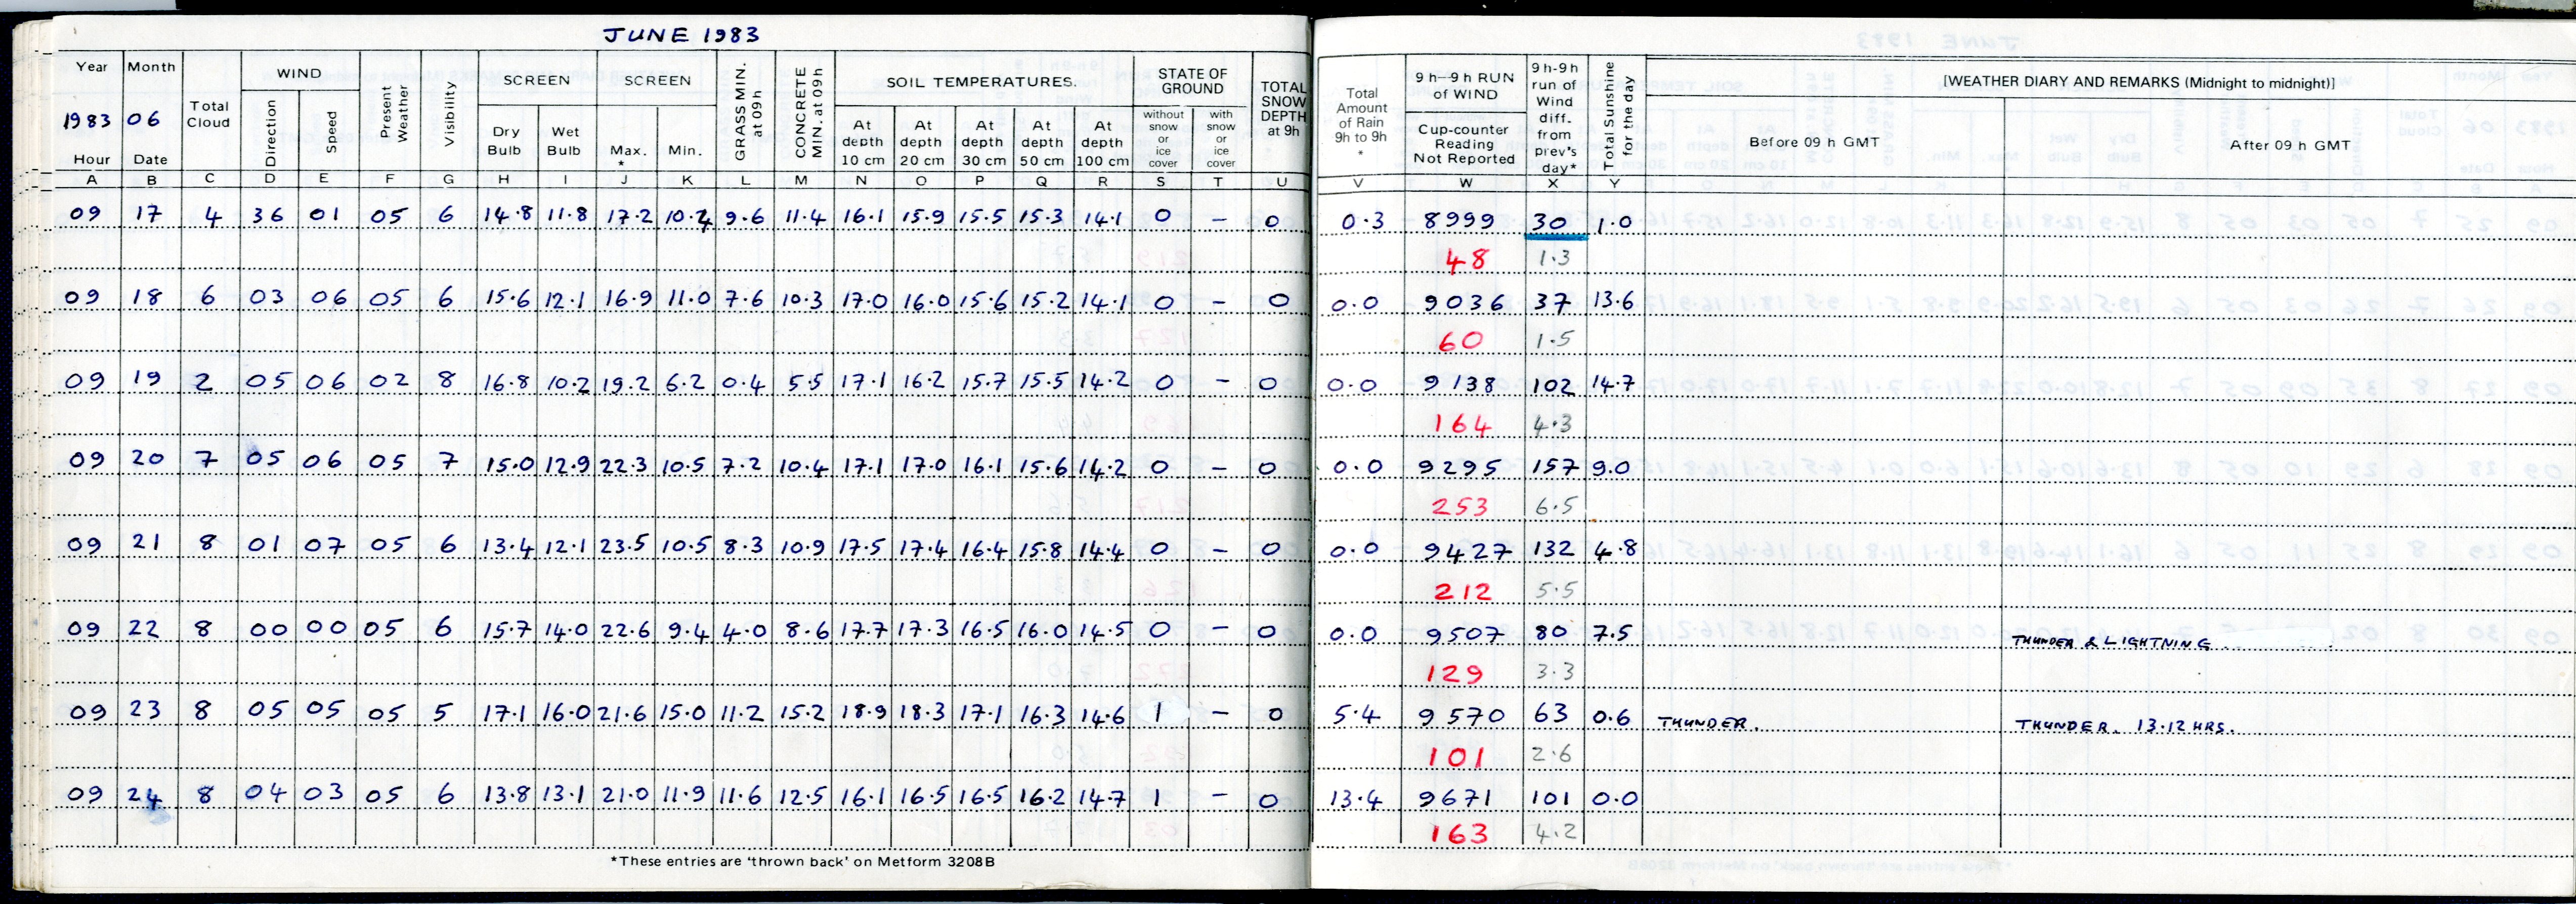 JUNE 1983
Year Month WIND SCREEN SCREEN SOIL TEMPERATURES. STATE OF GROUND
1983 06 Total Cloud Direction Speed Present Weather Visibility Dry Bulb Wet Bulb Max. * Min. GRASS MIN. at 09h CONCRETE MIN. at 09h At depth 10 cm At depth 20 cm At depth 30 cm At depth 50 cm At depth 100 cm without snow or ice cover with snow or ice cover TOTAL SNOW DEPTH at 9h
Hour Date
A B C D E F G H I J K L M N O P Q R S T U
09 17 4 36 01 05 6 14.8 11.8 17.2 10.4 9.6 11.4 16.1 15.9 15.5 15.3 14.1 0 – 0
09 18 6 03 06 05 6 15.6 12.1 16.9 11.0 7.6 10.3 17.0 16.0 15.6 15.2 14.1 0 – 0
09 19 2 05 06 02 8 16.8 10.2 19.2 6.2 0.4 5.5 17.1 16.2 15.7 15.5 14.2 0 – 0
09 20 7 05 06 05 7 15.0 12.9 22.3 10.5 7.2 10.4 17.1 17.0 16.1 15.6 14.2 0 – 0
09 21 8 01 07 05 6 13.4 12.1 23.5 10.5 8.3 10.9 17.5 17.4 16.4 15.8 14.4 0 – 0
09 22 8 00 00 05 6 15.7 14.0 22.6 9.4 4.0 8.6 17.7 17.3 16.5 16.0 14.5 0 – 0
09 23 8 05 05 05 5 17.1 16.0 21.6 15.0 11.2 15.2 18.9 18.3 17.1 16.3 14.6 1 – 0
09 24 8 04 03 05 6 13.8 13.1 21.0 11.9 11.6 12.5 16.1 16.5 16.5 16.2 14.7 1 – 0
*These entries are 'thrown back' on Metform 3208B
Total Amount of Rain 9h to 9h * 9 h–9 h RUN of WIND Cup-counter Reading Not Reported 9 h-9h run of Wind diff. from prev's day* Total Sunshine for the day [WEATHER DIARY AND REMARKS (Midnight to midnight)]
Before 09 h GMT After 09 h GMT
V W X Y
0.3 8999 30 1.0
48 1.3
0.0 9036 37 13.6
60 1.5
0.0 9138 102 14.7
164 4.3
0.0 9295 157 9.0
253 6.5
0.0 9427 132 4.8
212 5.5
0.0 9507 80 7.5 THUNDER & LIGHTNING
129 3.3
5.4 9570 63 0.6 THUNDER. THUNDER. 13.12 HRS.
101 2.6
13.4 9671 101 0.0
163 4.2